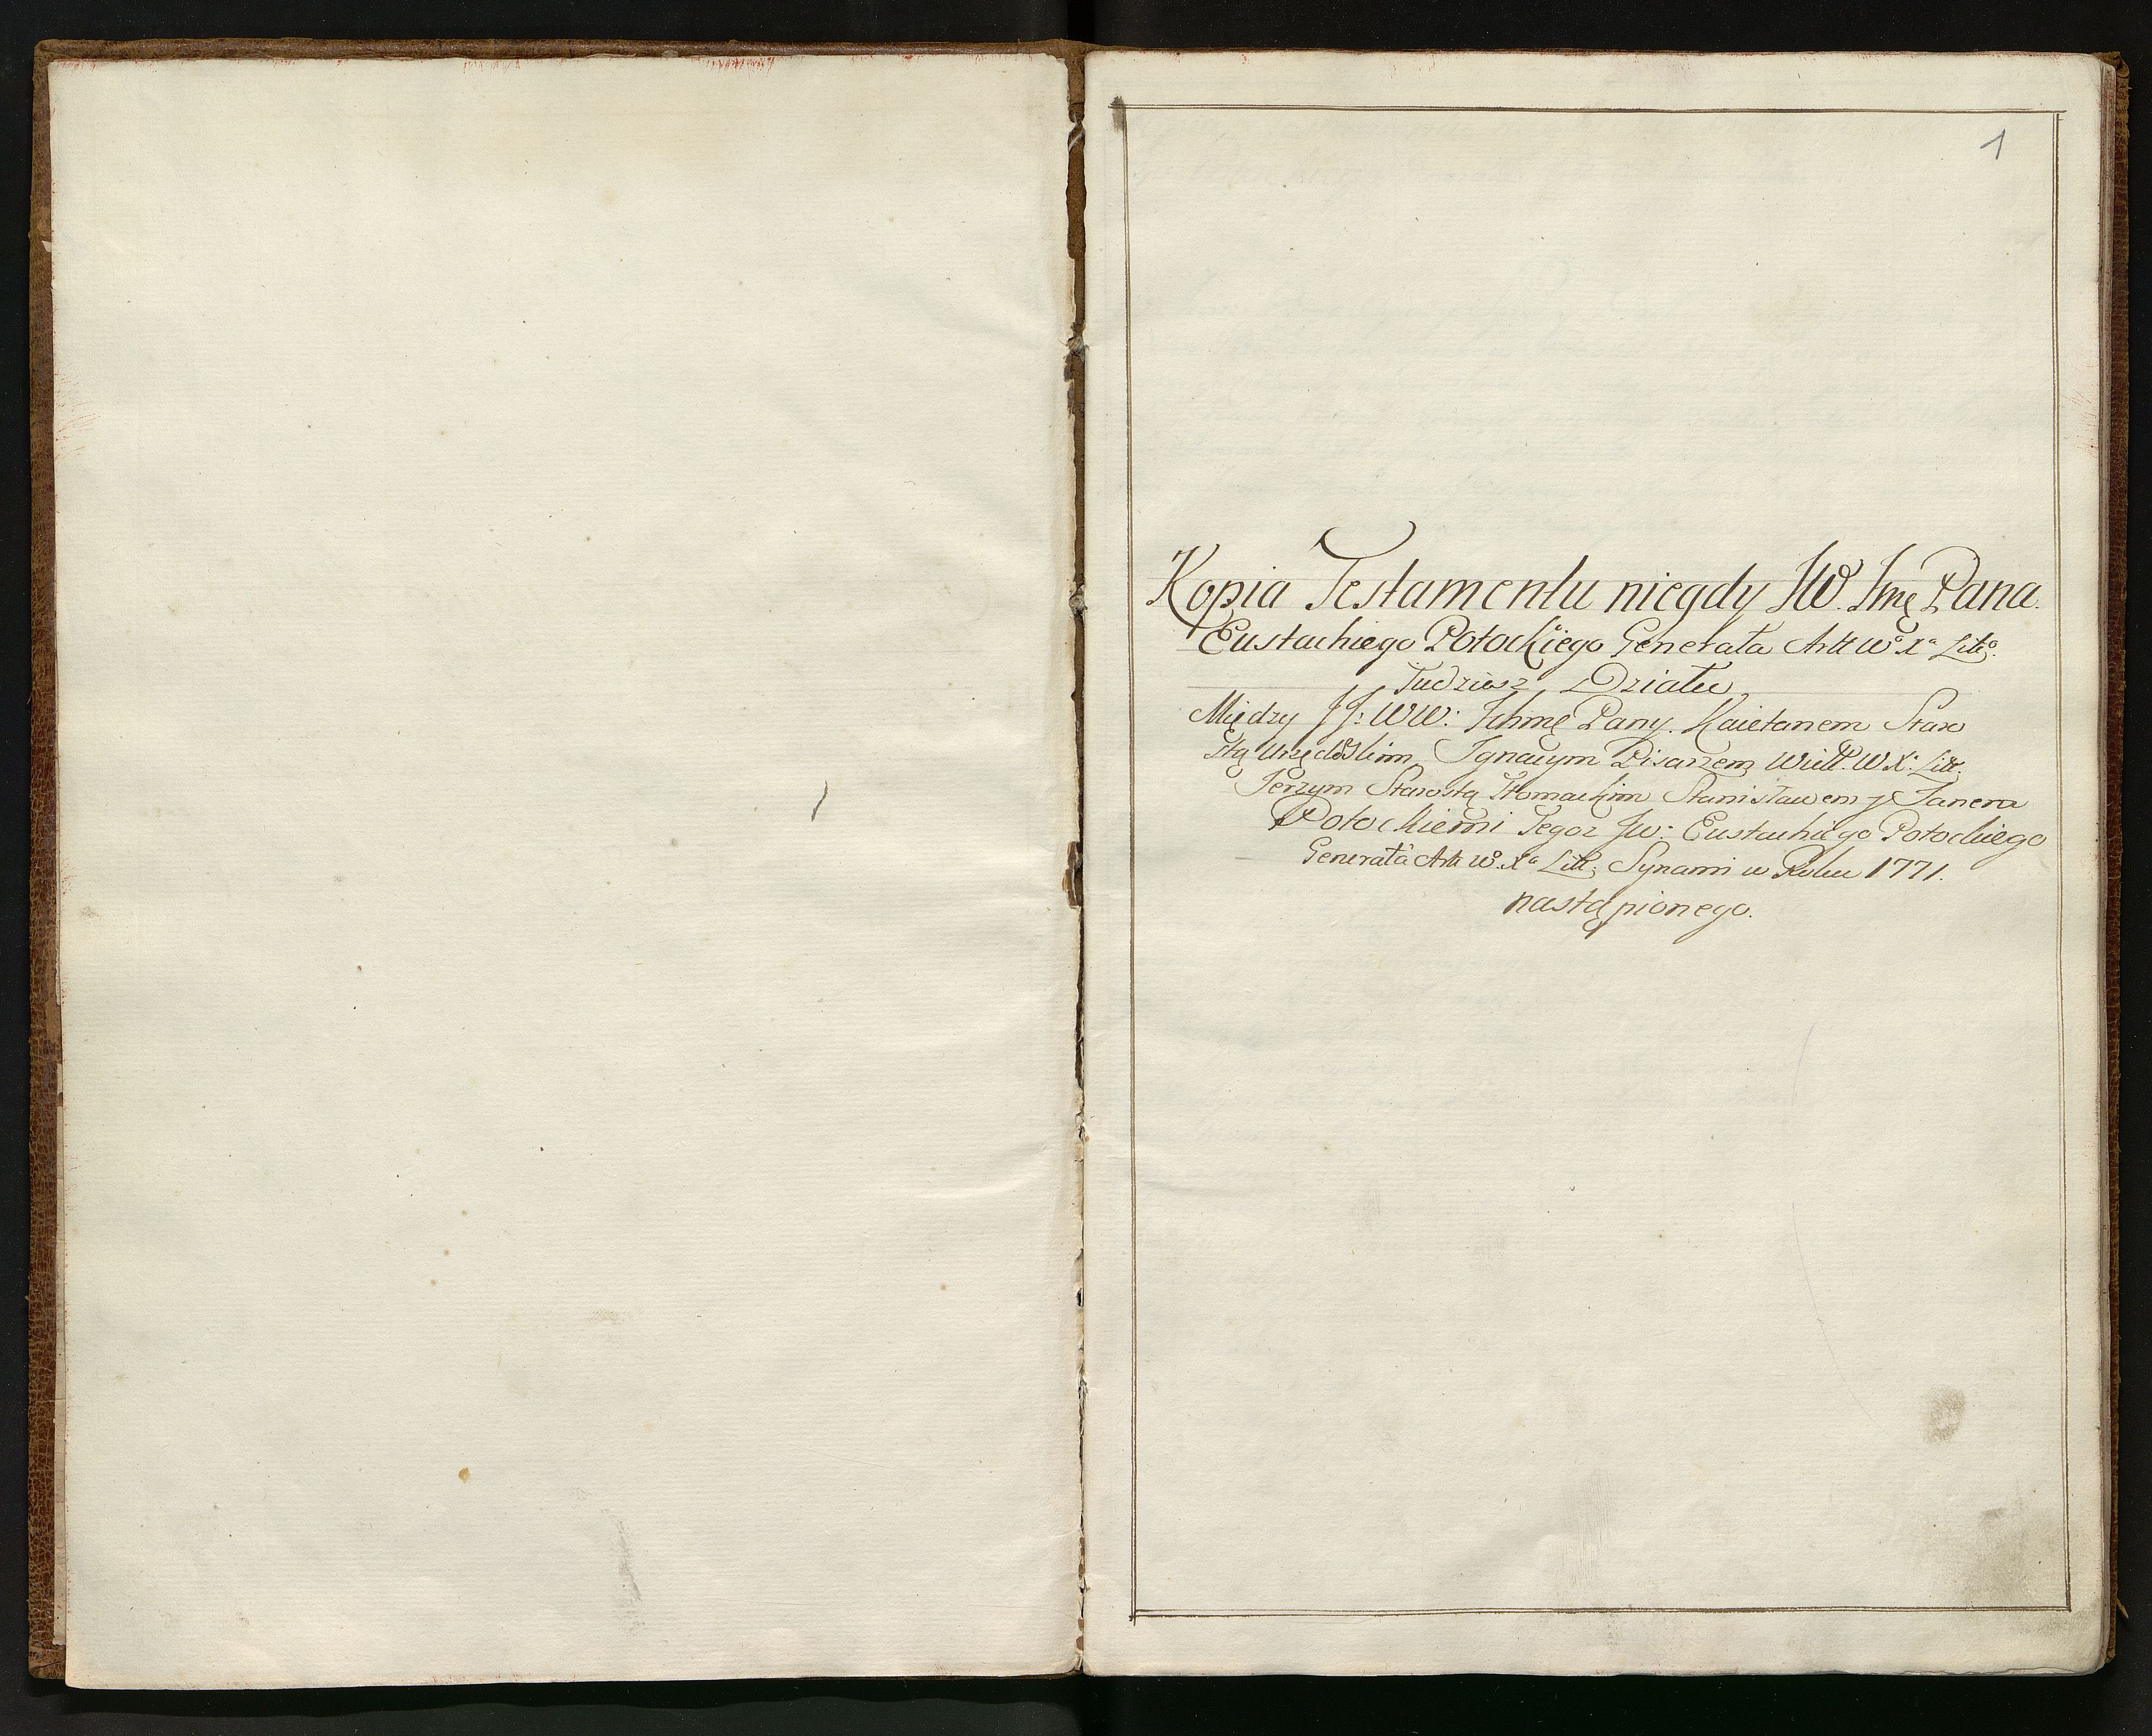 1
Kopia Testamentu niegdy JW. Jmę Pana.
Eustachiego Potockiego Generała Artt Wo Xa Litto.
Tudziesz Działu
Między JJ: WW: Ichmę Pany. Kaietanem Staro
stą Urzędowskim, Ignacym Pisarzem Wiell. W. X. Litt.
Jerzym Starostą Tłomackim Stanisławem y Janem
Potockiemi Tegoz JW: Eustachiego Potockiego
Generała Artt Wo. Xa Litt; Synami w Roku 1771.
nastąpionego.